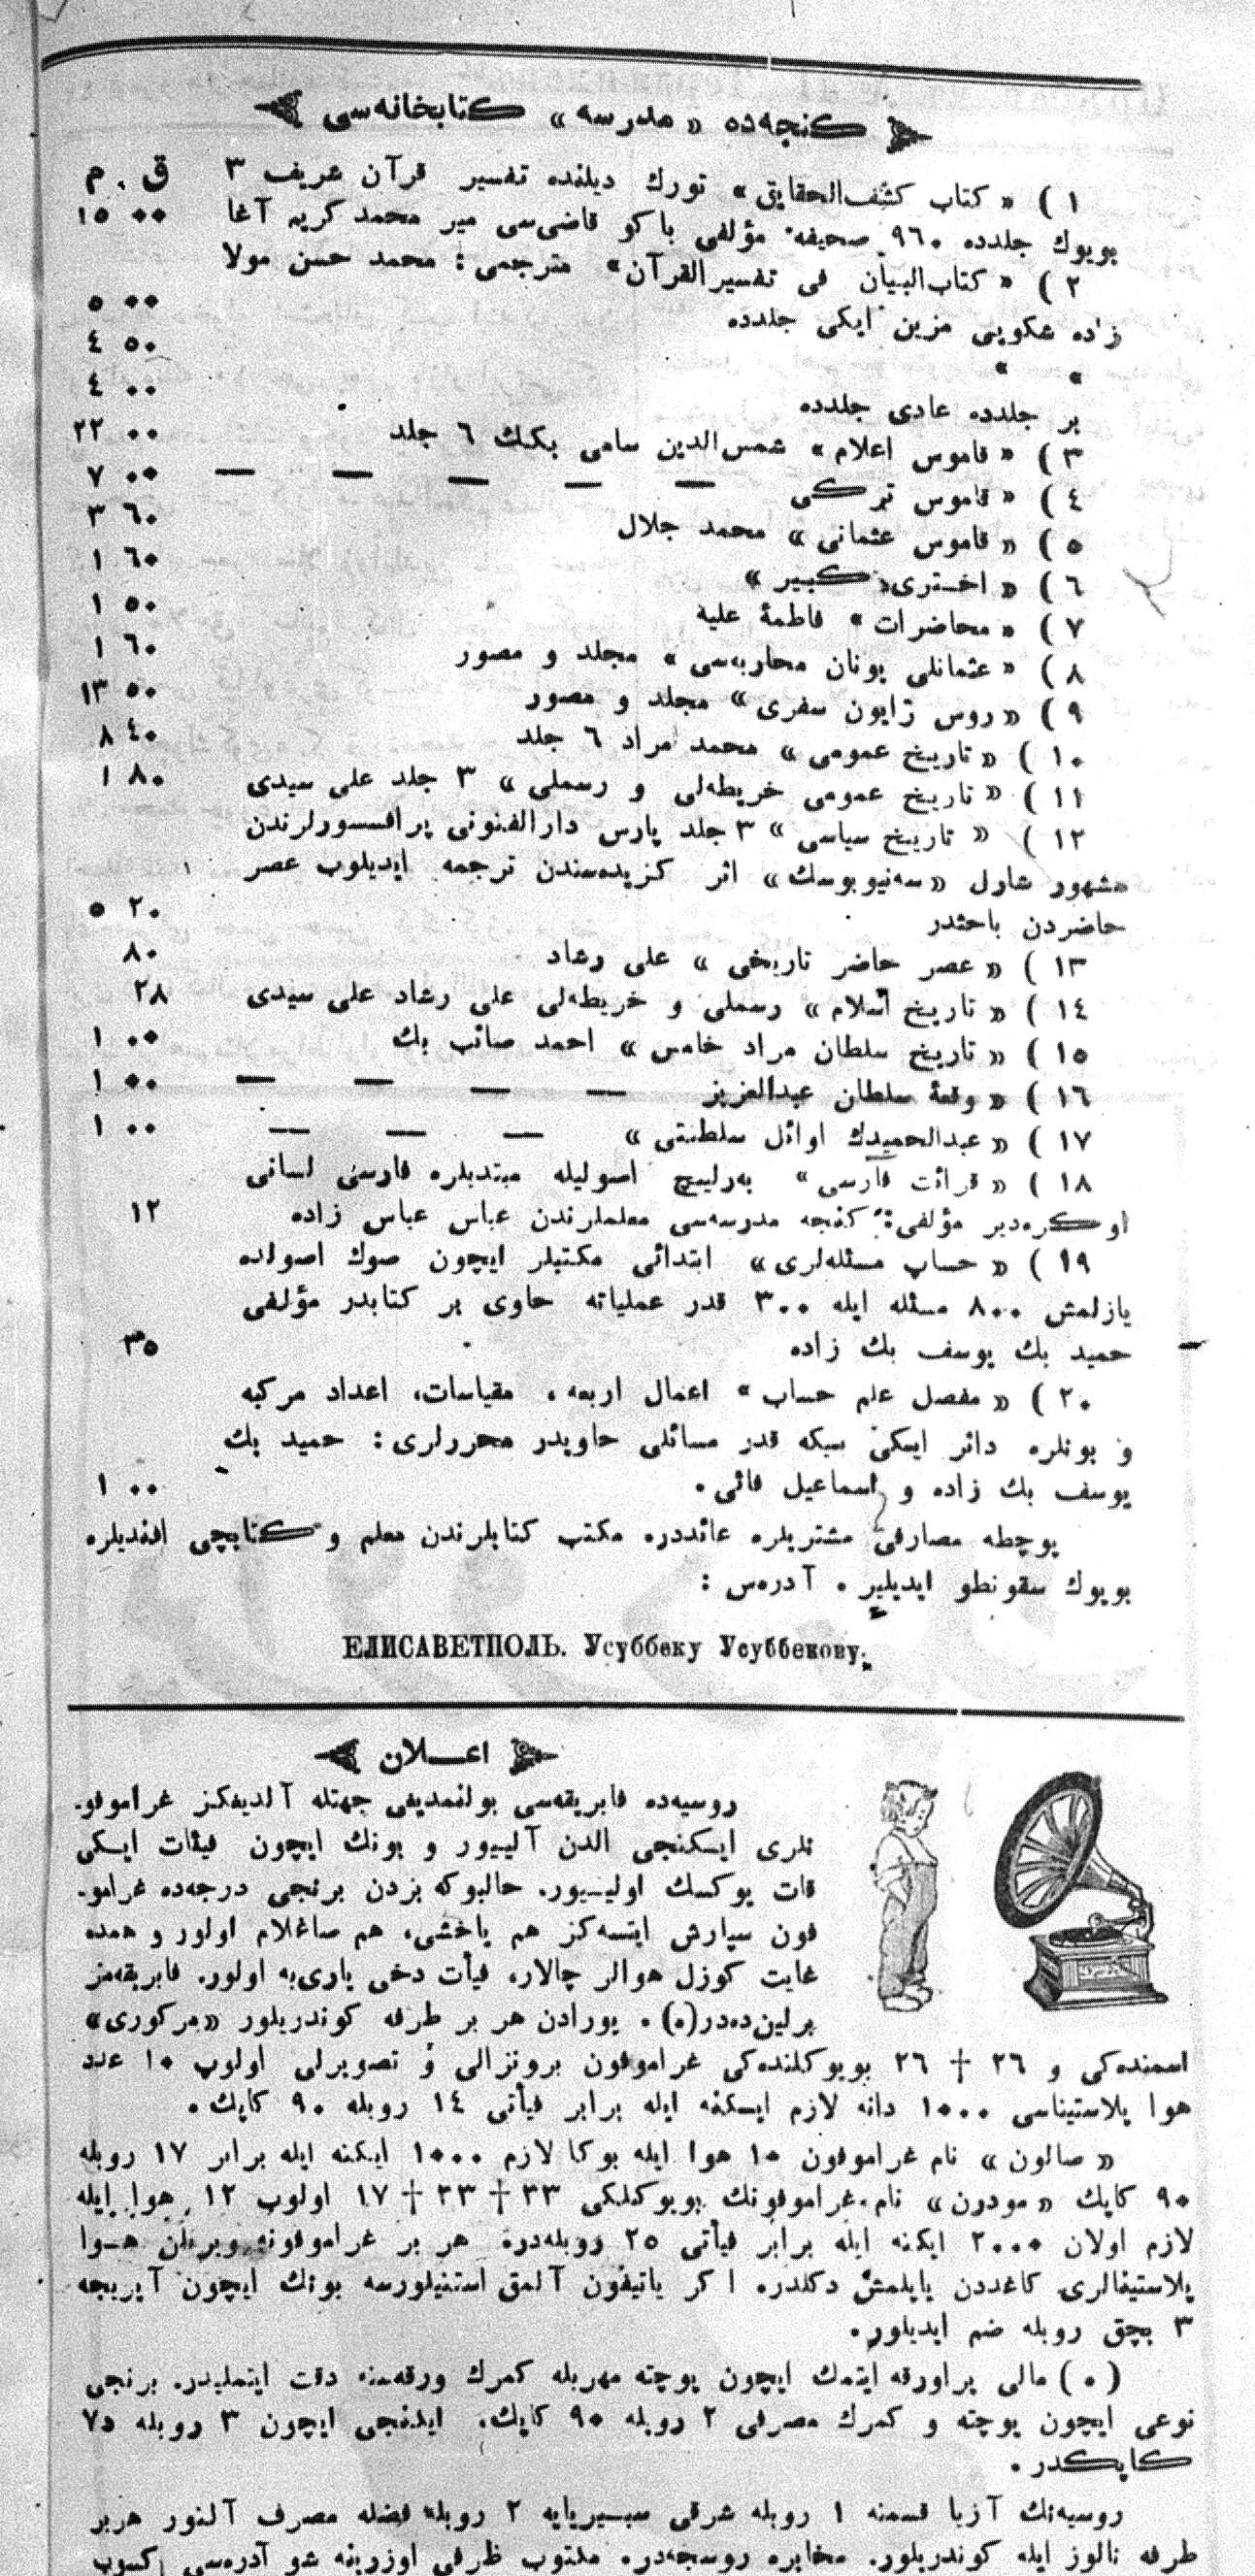 كنجه‌ده « مدرسه » كتابخانه‌سی
ق. م
١ ) « كتاب كشف‌الحقایق » تورك دیلنده تفسیر قرآن شریف ٣
بویوك جلدده ٩٦٠ صحیفه مؤلفی باكو قاضی‌سی میر محمد كریم آغا ٠٠ ١٥
٢ ) « كتاب‌البیان فی تفسیرالقرآن » مترجمی : محمد حسن مولا
زاده شكویی مزین ایكی جلدده ٠٠ ٥
» » ٥٠ ٤
بر جلدده عادی جلدده ٠٠ ٤
٣ ) « قاموس اعلام » شمس‌الدین سامی بكك ٦ جلد ٠٠ ٢٢
٤ ) « قاموس تركی — — — — — ٠٠ ٧
٥ ) « قاموس عثمانی » محمد جلال ٦٠ ٣
٦ ) « اختری كبیر » ٦٠ ١
٧ ) « محاضرات » فاطمهٔ علیه ٥٠ ١
٨ ) « عثمانلی یونان محاربه‌سی » مجلد و مصور ٦٠ ١
٩ ) « روس ژاپون سفری » مجلد و مصور ٥٠ ١٣
١٠ ) « تاریخ عمومی » محمد مراد ٦ جلد ٤٠ ٨
١١ ) « تاریخ عمومی خریطه‌لی و رسملی » ٣ جلد علی سیدی ٨٠ ١
١٢ ) « تاریخ سیاسی » ٣ جلد پارس دارالفنونی پرافسسورلرندن
مشهور شارل « سه‌نیوبوسك » اثر كزیده‌سندن ترجمه ایدیلوب عصر
حاضردن باحثدر ٢٠ ٥
١٣ ) « عصر حاضر تاریخی » علی رشاد ٨٠
١٤ ) « تاریخ اسلام » رسملی و خریطه‌لی علی رشاد علی سیدی ٢٨
١٥ ) « تاریخ سلطان مراد خامس » احمد صائب بك ٠٠ ١
١٦ ) « وقعهٔ سلطان عبدالعزیز — — — — ٠٠ ١
١٧ ) « عبدالحمیدك اوائل سلطنتی » — — — ٠٠ ١
١٨ ) « قرائت فارسی » به‌رلیچ اسولیله مبتدیلره فارسی لسانی
اوكره‌دیر مؤلفی : كنجه مدرسه‌سی معلملرندن عباس عباس زاده ١٢
١٩ ) « حساب مسئله‌لری » ابتدائی مكتبلر ایچون صوك اصولده
یازلمش ٨٠٠ مسئله ایله ٣٠٠ قدر عملیاته حاوی بر كتابدر مؤلفی
حمید بك یوسف بك زاده ٣٥
٢٠ ) « مفصل علم حساب » اعمال اربعه، مقیاسات، اعداد مركبه
و بونلره دائر ایكی سیكه قدر مسائلی حاویدر محررلری : حمید بك
یوسف بك زاده و اسماعیل فائی. ٠٠ ١
پوچطه مصارفی مشتریلره عائددر، مكتب كتابلرندن معلم و كتابچی افندیلره
بویوك سقونطو ایدیلیر. آدرس :
ЕЛИСАВЕТПОЛЬ. Усуббеку Усуббекову.
اعـلان
روسیه‌ده فابریقه‌سی بولنمدیغی جهتله آلدیغكز غراموفو-
نلری ایكنجی الدن آلییور و بونك ایچون فیئات ایكی
قات یوكسك اولییور. حالبوكه بزدن برنجی درجه‌ده غرامو-
فون سپارش ایتسه‌كز هم یاخشی، هم صاغلام اولور و همده
غایت كوزل هوالر چالار، فیأت دخی یاری‌یه اولور. فابریقه‌مز
برلین‌ده‌در(٠). بورادن هر بر طرفه كوندریلور « مركوری »
اسمنده‌كی و ٢٦ † ٢٦ بویوكلنده‌كی غراموفون برونزالی و تصویرلی اولوب ١٠ عدد
هوا پلاستیناسی ١٠٠٠ دانه لازم ایكنه ایله برابر فیأتی ١٤ روبله ٩٠ كاپك.
« صالون » نام غراموفون ١٠ هوا ایله بوكا لازم ١٠٠٠ ایكنه ایله برابر ١٧ روبله
٩٠ كاپك « مودرن » نام غراموفونك بویوكلكی ٣٣ † ٣٣ † ١٧ اولوب ١٢ هوا ایله
لازم اولان ٢٠٠٠ ایكنه ایله برابر فیأتی ٢٥ روبله‌در، هر بر غراموفونه ویریلن هوا
پلاستینالری كاغددن یاپلمش دكلدر، اكر پاتیفون آلمق استنیلورسه بونك ایچون آیریجه
٣ بچق روبله ضم ایدیلور.
(٠) مالی پراورقه ایتمك ایچون پوچته مهریله كمرك ورقه‌سنه دقت ایتملیدر. برنجی
نوعی ایچون پوچته و كمرك مصرفی ٢ روبله ٩٠ كاپك، ایكنجی ایچون ٣ روبله ٧٥
كاپكدر.
روسیه‌نك آزیا قسمنه ١ روبله شرقی سیبیریایه ٢ روبله فضله مصرف آلنور هربر
طرفه نالوژ ایله كوندریلور. مخابره روسجه‌در، مكتوب ظرفی اوزرینه شو آدره‌سی